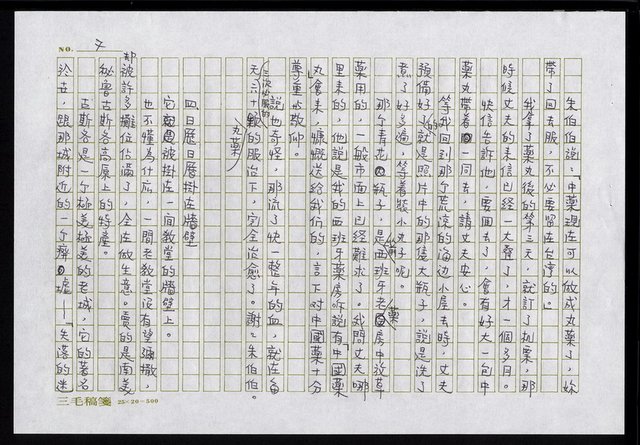 NO. 7
朱伯伯說:「中藥現在可以做成丸藥了,妳
帶了回去服,不必要留在台灣的。」
我拿了藥丸後的第三天,就訂了機票,那
時候丈夫的來信已經一大疊了,才一個多月。
快信告訴他,要回去了,會有好大一包中
藥丸帶著一同去,請丈夫安心。
等我回到那個荒涼的海邊小屋去時,丈夫
預備好了的就是照片中的那隻大瓶子,說是洗了
煮了好多遍,等著裝小丸子呢。
那個青花瓶子,是西班牙老藥房中放草
藥用的,一般市面上已經難求了。我問丈夫哪
裡來的,他說是我的西班牙藥房聽說有中國藥
丸會來,慷慨送給我們的,言下對中國藥十分
尊重與敬仰。
說也奇怪,那流了快一整年的血,就在每
天三次必服的六十顆的服治下,完全治癒了。謝謝朱伯伯。
丸藥
四日曆日曆掛在牆壁
它被掛在一間教堂的牆壁上。
也不懂為什麼,一間老教堂沒有望彌撒,
卻被許多攤位佔滿了,全在做生意。賣的是南美
秘魯古斯各高原上的特產。
古斯各是一個極美極美的老城,它的著名
於世,跟那城附近的一個廢墟——「失落的迷
三毛稿箋 25×20=500